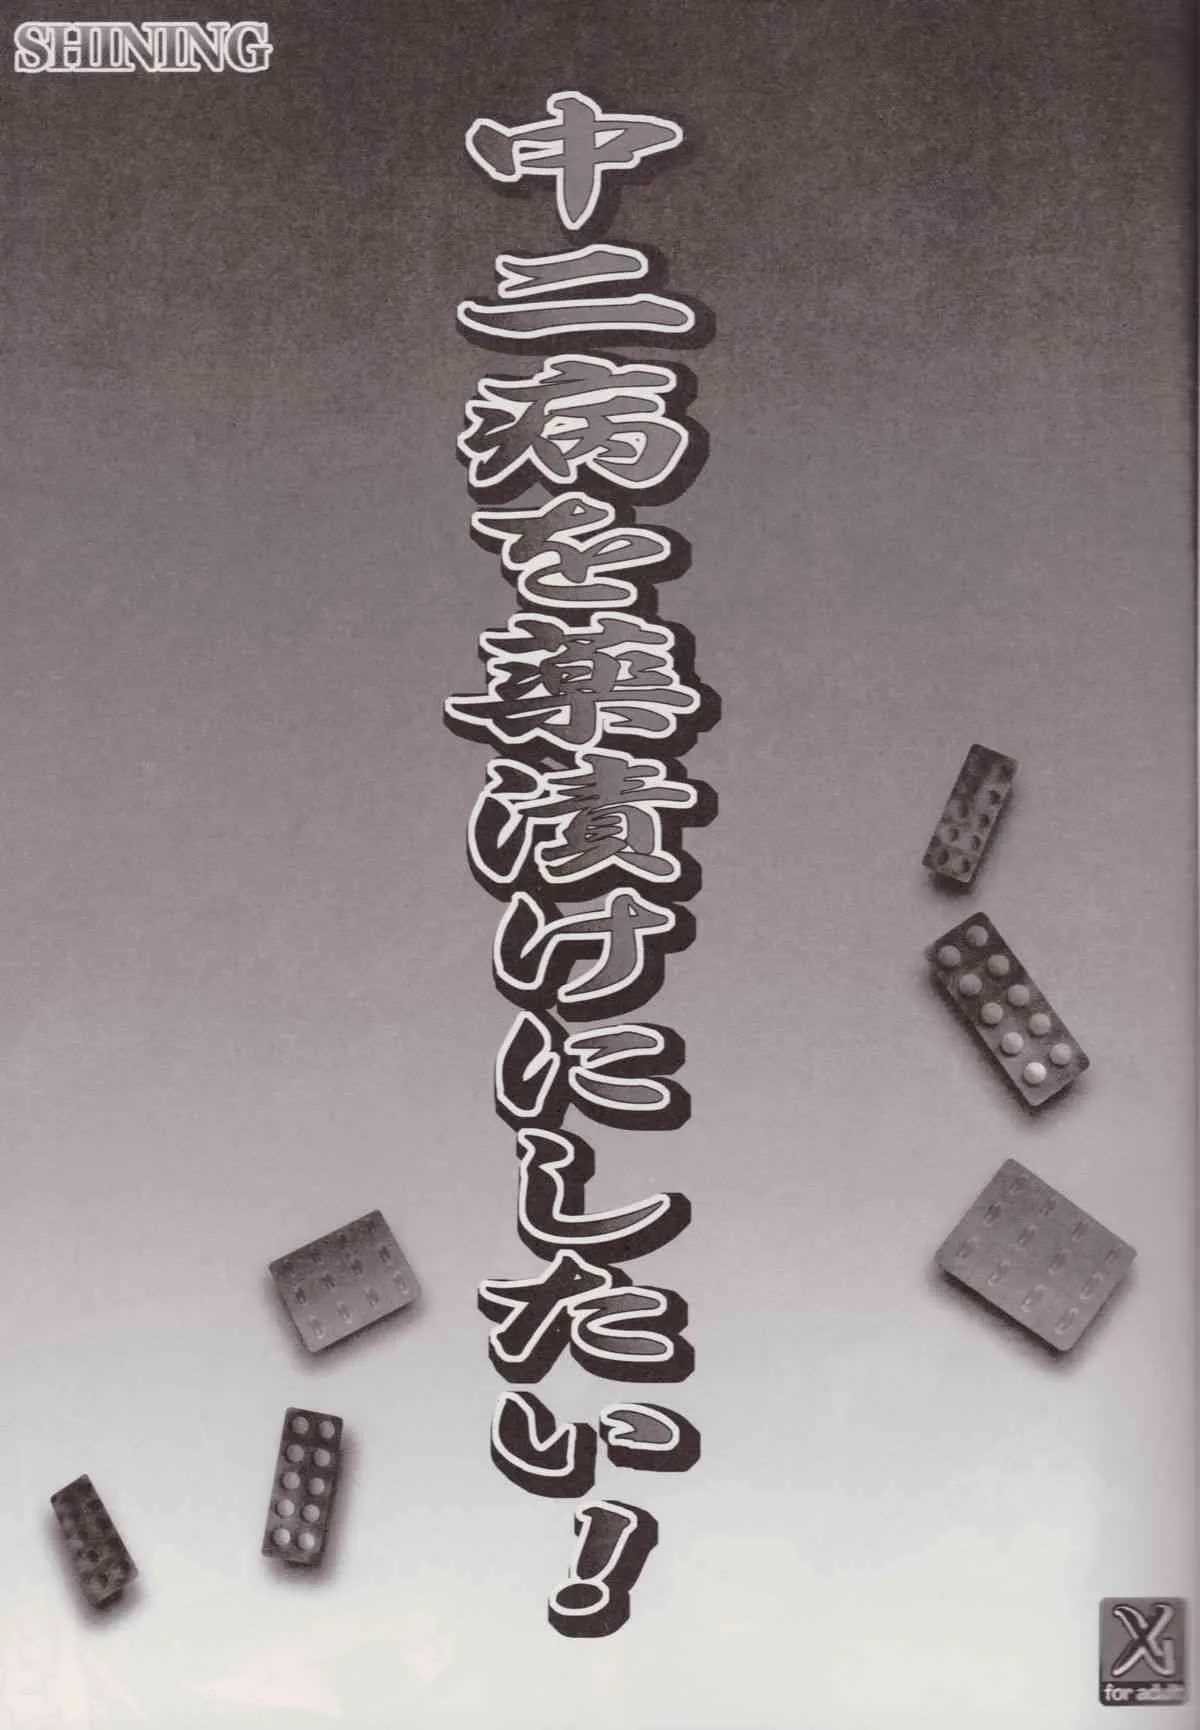 SHINING
中二病を薬漬けにしたい!
X
for adult